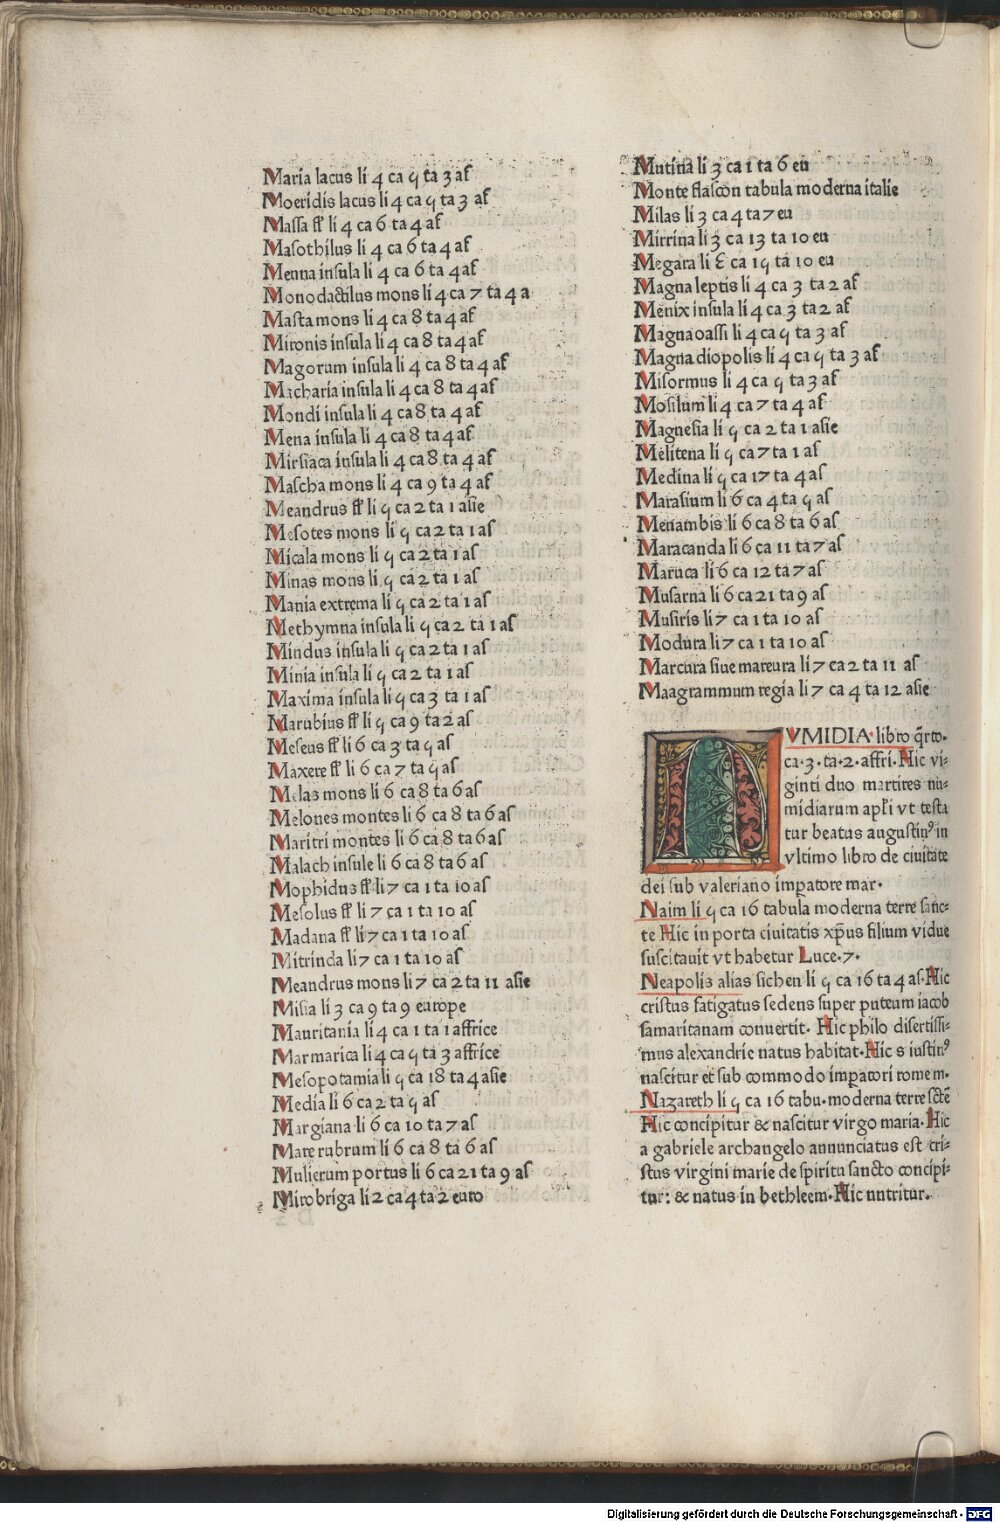 Maria lacus li 4 ca 5 ta 3 af
Moeridis lacus li 4 ca 5 ta 3 af
Massa fl̄ li 4 ca 6 ta 4 af
Masothilus li 4 ca 6 ta 4 af
Menna insula li 4 ca 6 ta 4 af
Monodactilus mons li 4 ca 7 ta 4 a
Masta mons li 4 ca 8 ta 4 af
Mironis insula li 4 ca 8 ta 4 af
Magorum insula li 4 ca 8 ta 4 af
Macharia insula li 4 ca 8 ta 4 af
Mondi insula li 4 ca 8 ta 4 af
Mena insula li 4 ca 8 ta 4 af
Mirsiaca insula li 4 ca 8 ta 4 af
Mascha mons li 4 ca 9 ta 4 af
Meandrus fl̄ li 5 ca 2 ta 1 asie
Mesotes mons li 5 ca 2 ta 1 as
Micala mons li 5 ca 2 ta 1 as
Minas mons li 5 ca 2 ta 1 as
Mania extrema li 5 ca 2 ta 1 as
Methymna insula li 5 ca 2 ta 1 as
Mindus insula li 5 ca 2 ta 1 as
Minia insula li 5 ca 2 ta 1 as
Maxima insula li 5 ca 3 ta 1 as
Marubius fl̄ li 5 ca 9 ta 2 as
Meseus fl̄ li 6 ca 3 ta 5 as
Maxere fl̄ li 6 ca 7 ta 5 as
Melas mons li 6 ca 8 ta 6 as
Melones montes li 6 ca 8 ta 6 as
Maritri montes li 6 ca 8 ta 6 as
Malach insule li 6 ca 8 ta 6 as
Mophidus fl̄ li 7 ca 1 ta 10 as
Mesolus fl̄ li 7 ca 1 ta 10 as
Madana fl̄ li 7 ca 1 ta 10 as
Mitrinda li 7 ca 1 ta 10 as
Meandrus mons li 7 ca 2 ta 11 asie
Misia li 3 ca 9 ta 9 europe
Mauritania li 4 ca 1 ta 1 affrice
Marmarica li 4 ca 5 ta 3 affrice
Mesopotamia li 5 ca 18 ta 4 asie
Media li 6 ca 2 ta 5 as
Margiana li 6 ca 10 ta 7 as
Mare rubrum li 6 ca 8 ta 6 as
Mulierum portus li 6 ca 21 ta 9 as
Mirobriga li 2 ca 4 ta 2 euro
Mutina li 3 ca 1 ta 6 eu
Monte flascon tabula moderna italie
Milas li 3 ca 4 ta 7 eu
Mirrina li 3 ca 13 ta 10 eu
Megara li 3 ca 15 ta 10 eu
Magna leptis li 4 ca 3 ta 2 af
Menix insula li 4 ca 3 ta 2 af
Magna oassi li 4 ca 5 ta 3 af
Magna diopolis li 4 ca 5 ta 3 af
Misormus li 4 ca 5 ta 3 af
Mosilum li 4 ca 7 ta 4 af
Magnesia li 5 ca 2 ta 1 asie
Melitena li 5 ca 7 ta 1 as
Medina li 5 ca 17 ta 4 as
Marasium li 6 ca 4 ta 5 as
Menambis li 6 ca 8 ta 6 as
Maracanda li 6 ca 11 ta 7 as
Maruca li 6 ca 12 ta 7 as
Musarna li 6 ca 21 ta 9 as
Musiris li 7 ca 1 ta 10 as
Modura li 7 ca 1 ta 10 as
Marcura siue mareura li 7 ca 2 ta 11 as
Maagrammum regia li 7 ca 4 ta 12 asie
NVMIDIA libro q̄rto.
ca.3.ta.2.affri. Hic vi-
ginti duo martires nu-
midiarum apl̄i vt testa
tur beatus augustinꝰ in
vltimo libro de ciuitate
dei sub valeriano imp̄atore mar.
Naim li 5 ca 16 tabula moderna terre sanc-
te Hic in porta ciuitatis xp̄us filium vidue
suscitauit vt habetur Luce.7.
Neapolis alias sichen li 5 ca 16 ta 4 as. Hic
cristus fatigatus sedens super puteum iacob
samaritanam conuertit. Hic philo disertissi-
mus alexandrie natus habitat. Hic s iustinꝰ
nascitur et sub commodo imp̄atori rome m.
Nazareth li 5 ca 16 tabu. moderna terre sc̄te
Hic concipitur & nascitur virgo maria. Hic
a gabriele archangelo annunciatus est cri-
stus virgini marie de spiritu sancto concipi-
tur: & natus in bethleem. Hic nutritur.
Digitalisierung gefördert durch die Deutsche Forschungsgemeinschaft - DFG